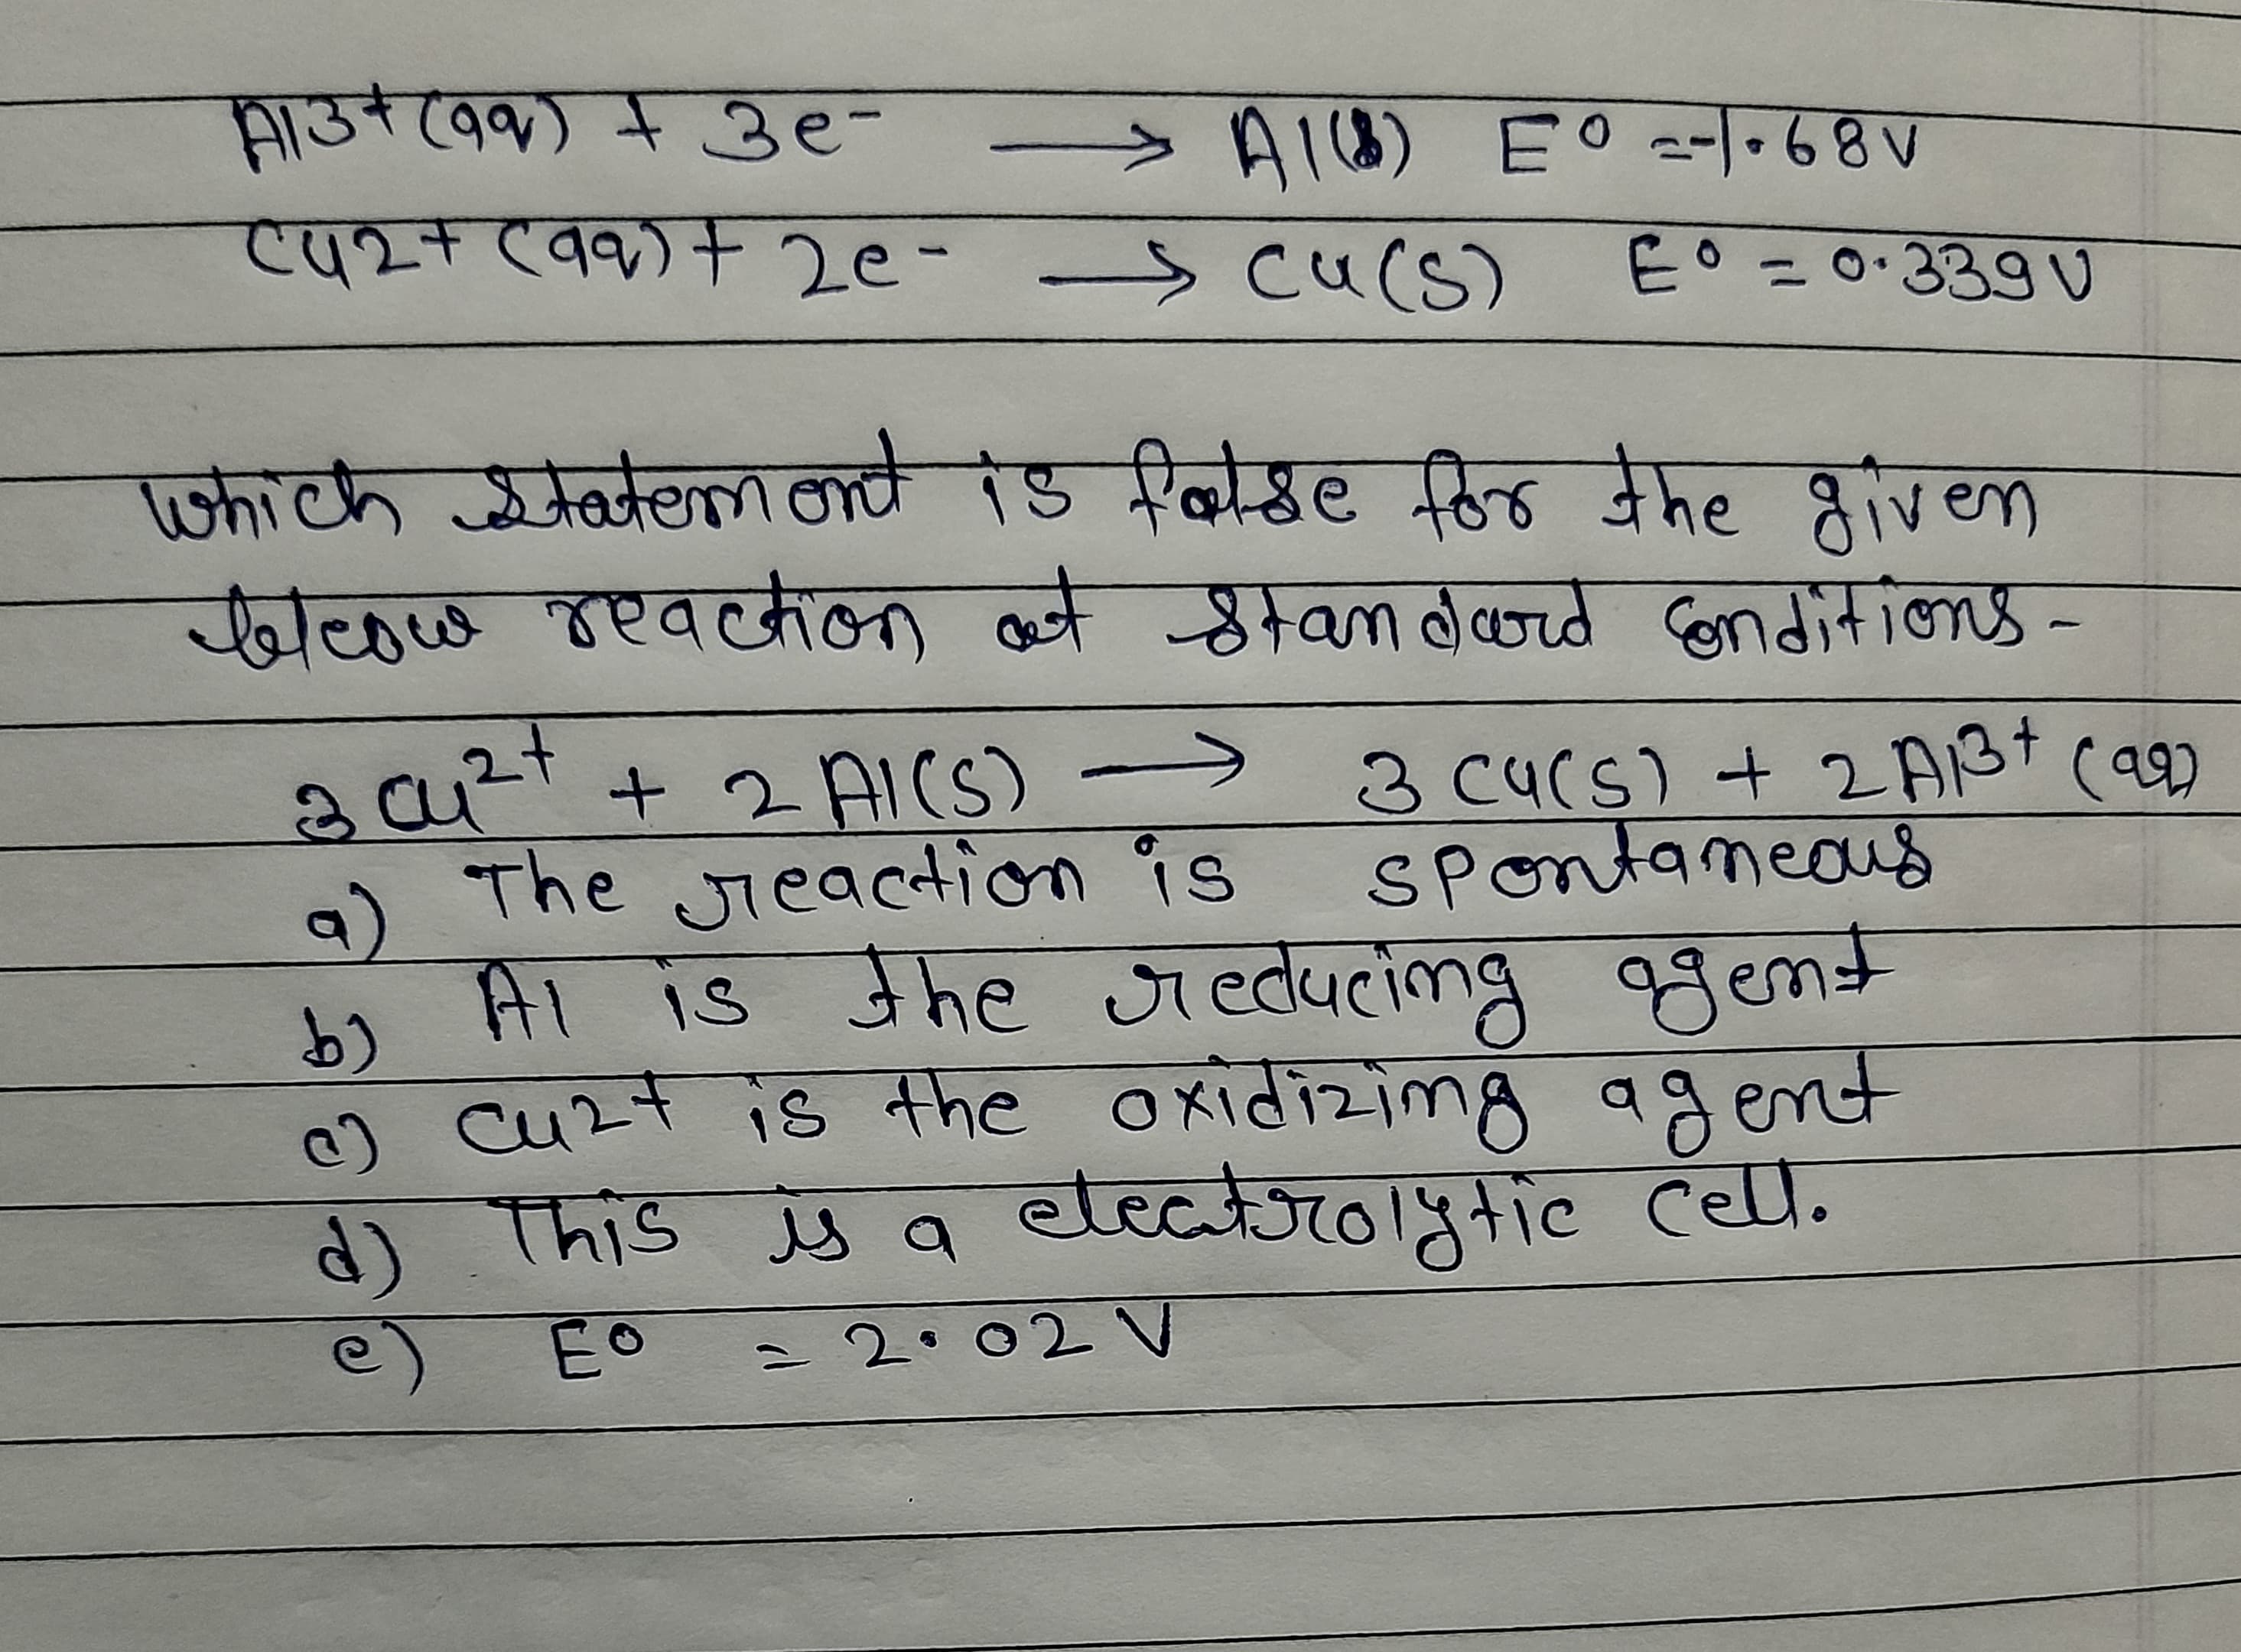 Al3+ (aq) + 3e- → Al(s) E⁰ =-1.68V
Cu2+ (aq) + 2e- → Cu(s) E⁰ = 0.339V
Which statement is false for the given
below reaction at standard conditions-
3Cu²⁺ + 2Al(s) → 3Cu(s) + 2Al3+ (aq)
a) The reaction is spontaneous
b) Al is the reducing agent
c) Cu2+ is the oxidizing agent
d) This is a electrolytic cell.
e) E⁰ = 2.02V